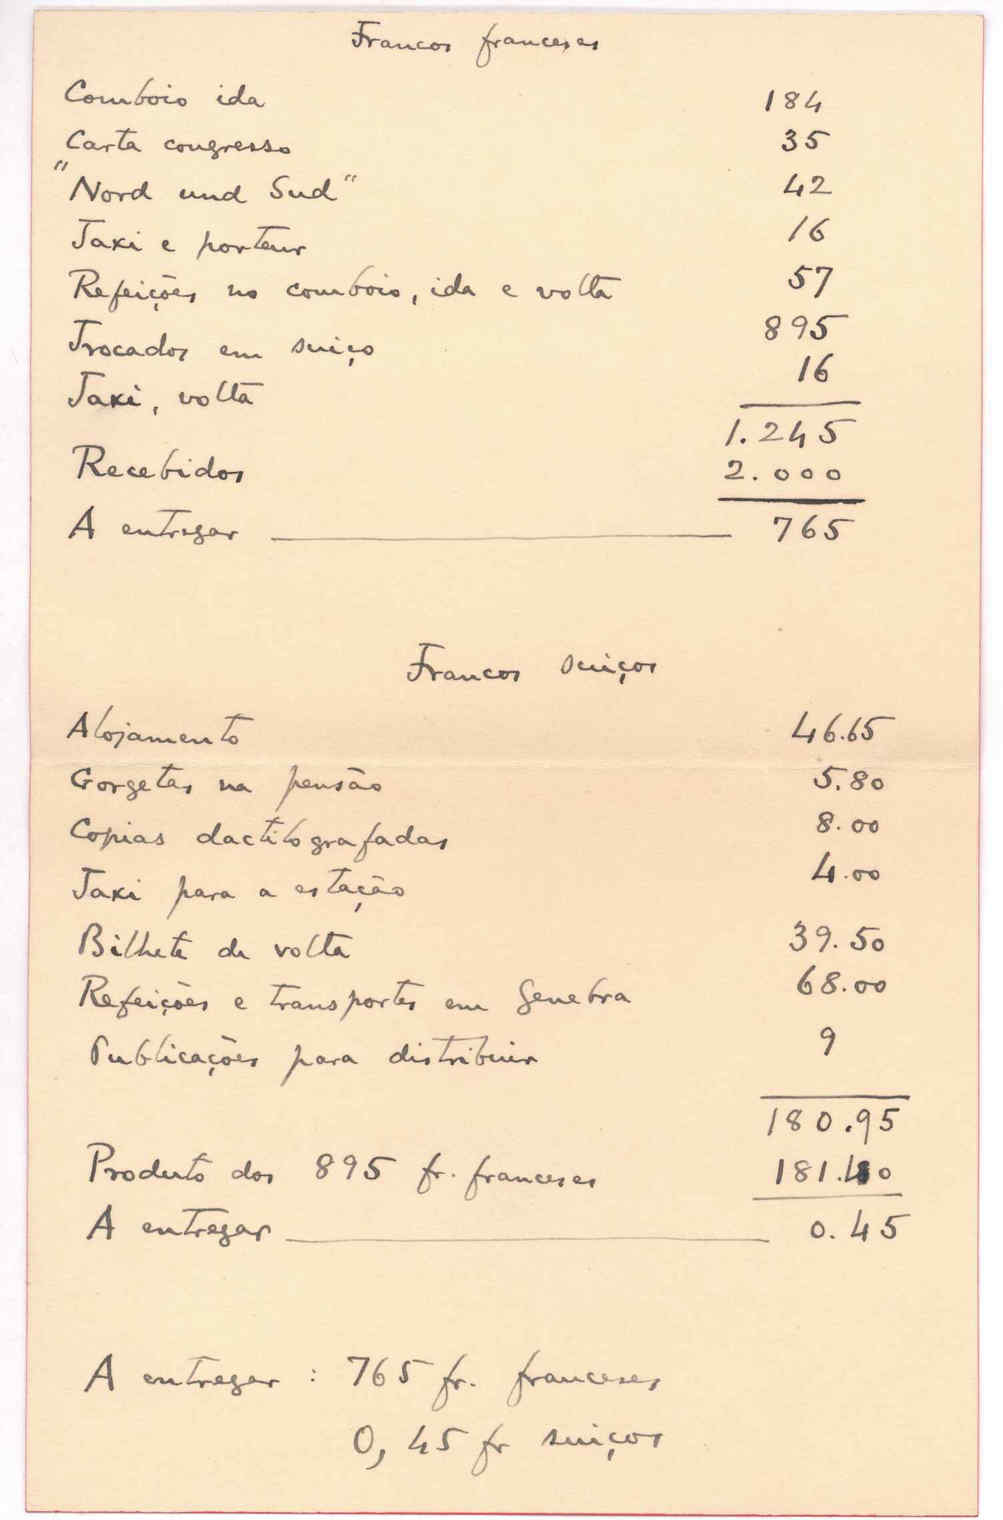 Francos franceses
Comboio ida 184
Carta congresso 35
"Nord und Sud" 42
Taxi e porteur 16
Refeições no comboio, ida e volta 57
Trocados em suiço 895
Taxi, volta 16
1.245
Recebidos 2.000
A entregar 765
Francos suiços
Alojamento 46.65
Gorgetas na pensão 5.80
Copias dactilografadas 8.00
Taxi para a estação 4.00
Bilhete de volta 39.50
Refeições e transportes em Genebra 68.00
Publicações para distribuir 9
180.95
Produto dos 895 fr. franceses 181.40
A entregar 0.45
A entregar : 765 fr. franceses
0,45 fr suiços